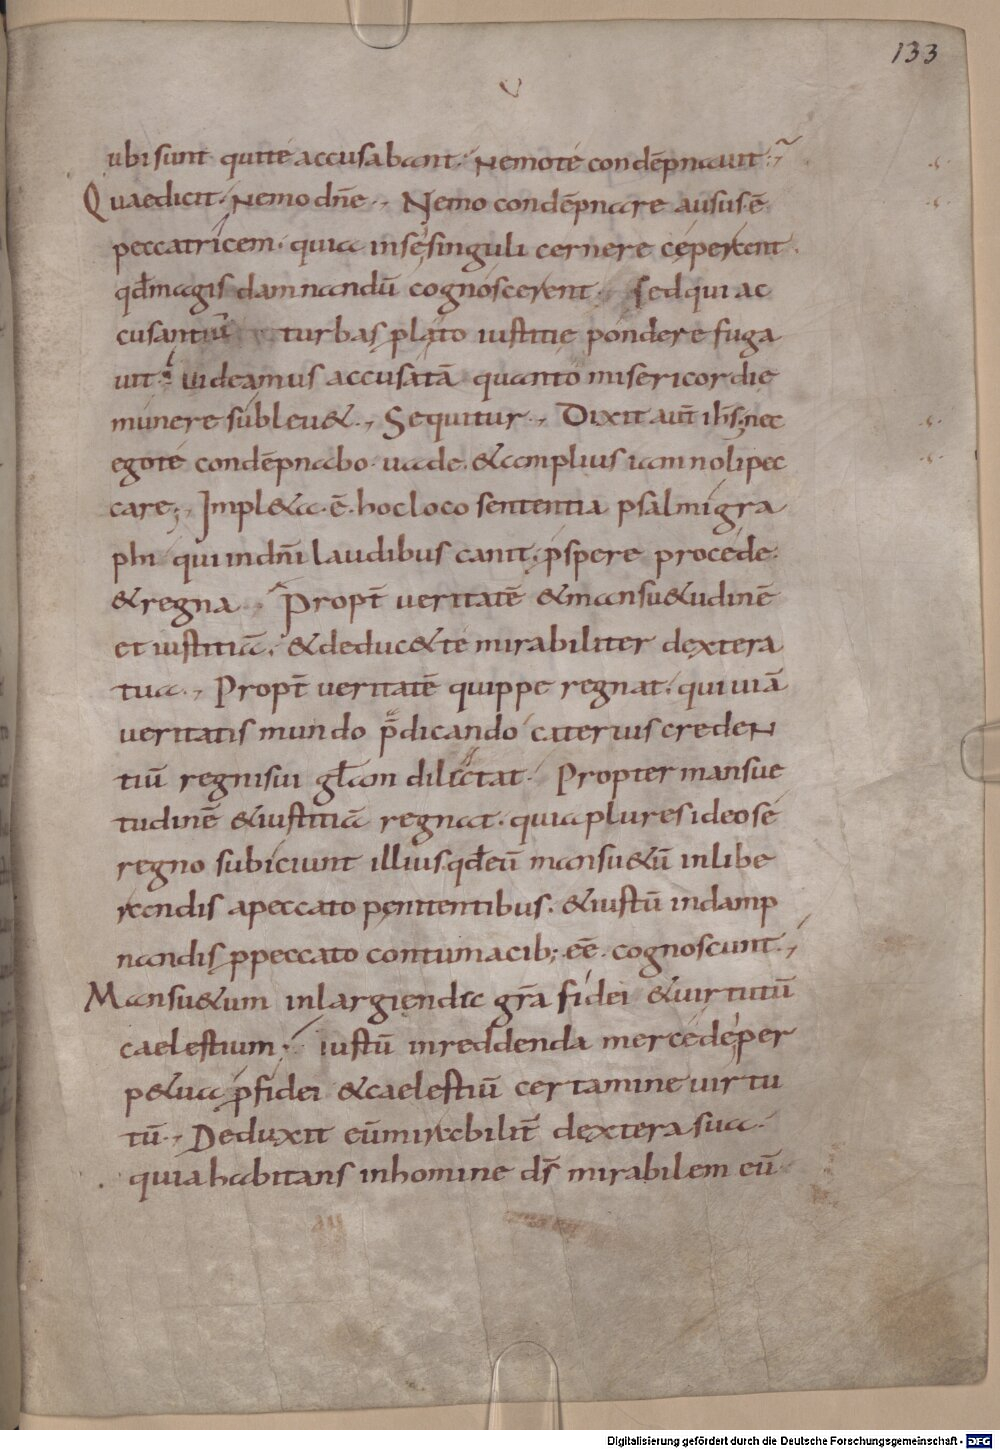 133
ubi sunt qui te accusabant. Nemo te condēpnavit.
Quae dicit. Nemo dn̄e., Nemo condēpnare ausus ē
peccatricem. quia in se singuli cernere cęperant.
qđ magis damnandū cognoscerent. Sed qui ac
cusantiū turbas plato iustitię pondere fuga
vit. videamus accusatā quanto misericordię
munere suble&., Sequitur., Dixit aut̄ ih̄s. nec
ego te condēpnabo. vade. & amplius iam noli pec
care., Impl&a. ē. hoc loco sententia psalmigra
phi qui in dn̄i laudibus canit. pspere procede.
& regna., Propt̄ veritatē & mansu&udinē
et iustitiā. & deduc& te mirabiliter dextera
tua., Propt̄ veritatē quippe regnat. qui viā
veritatis mundo p̄dicando catervis creden
tiū regni sui gl̄am dilatat. Propter mansue
tudinē & iustitiā regnat. quia plures ideo se
regno subiciunt illius. qđ eū mansu&ū in libe
randis a peccato penitentibus. & iustū in damp
nandis p peccato contumacib; eē. cognoscunt.,
Mansu&um in largienda gr̄a fidei & virtutū
caelestium., iustū in reddenda mercede per
p&ua p fidei & caelestiū certamine virtu
tū., Deduxit eū mirabilit̄ dextera sua.
quia habitans in homine ds̄ mirabilem eū
Digitalisierung gefördert durch die Deutsche Forschungsgemeinschaft - DFG